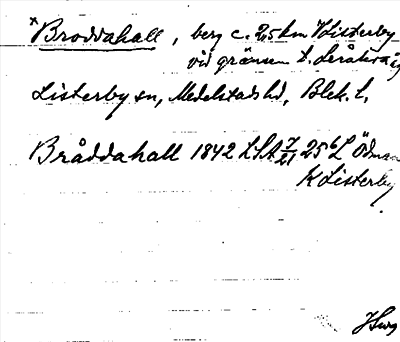 *Broddahall, berg c. 2,5 km V Listerby
vid gränsen t.
Listerby sn, Medelstads hd, Blek. l.
Bråddahall 1842 LSA 25 L
K Listerby